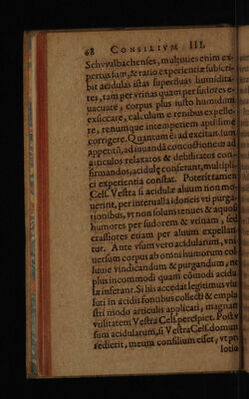 68 CONSILIVM III.
Schvvalbachenses, multoties enim ex-
pertus sum, & ratio experientiæ subscri-
bit acidulas istas superfluas humidita-
tes, tam per vrinas quam per sudores e-
uacuare, corpus plus iusto humidum
exsiccare, calculum e renibus expelle-
re, renumque intemperiem aptissime
corrigere. Quantum ad excitandum
appetitũ, adiuuandã concoctionem ad
articulos relaxatos & debilitatos con-
firmandos, acidulæ conferant, multipli-
ci experientia constat. Poterit tamen
Cels. Vestra si acidulæ aluum non mo-
uerint, per interualla idoneis vti purga-
tionibus, vt non solum tenues & aquosi
humores per sudorem & vrinam, sed
crassiores etiam per aluum expellan-
tur. Ante vsum vero acidularum, vni-
uersum corpus ab omni humorum col-
luuie vindicandum & purgandum, ne
plus incommodi quam cõmodi acidu-
læ inferant. Si his accedat legitimus vsus
luti in acidis fontibus collecti &
stri modo articulis applicati, magnam
vtilitatem Vestra Cels. percipiet. Post v-
sum acidularum, si Vestra Cels. domum
redierit, meum consilium esset, vt pro
lotio